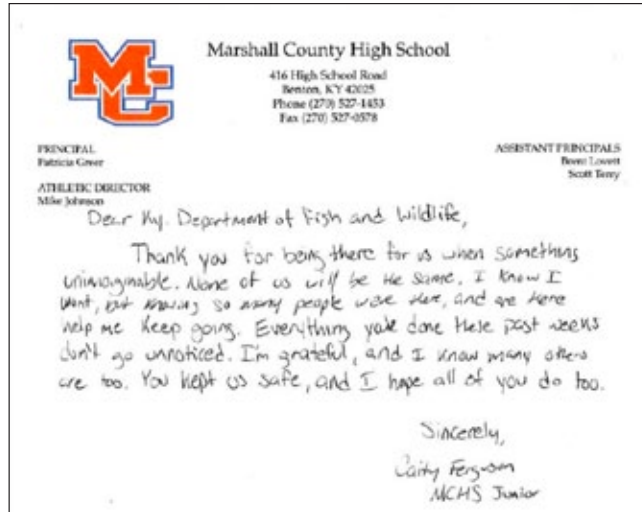 MC
Marshall County High School
416 High School Road
Benton, KY 42025
Phone (270) 527-1453
Fax (270) 527-0578
PRINCIPAL
Patricia Greer
ASSISTANT PRINCIPALS
Brent Lovett
Scott Terry
ATHLETIC DIRECTOR
Mike Johnson
Dear Ky. Department of Fish and Wildlife,
Thank you for being there for us when something
unimaginable. None of us will be the same. I know I
wont, but knowing so many people were there, and are here
help me keep going. Everything you've done these past weeks
don't go unnoticed. I'm grateful, and I know many others
are too. You kept us safe, and I hope all of you do too.
Sincerely,
Caity Ferguson
MCHS Junior